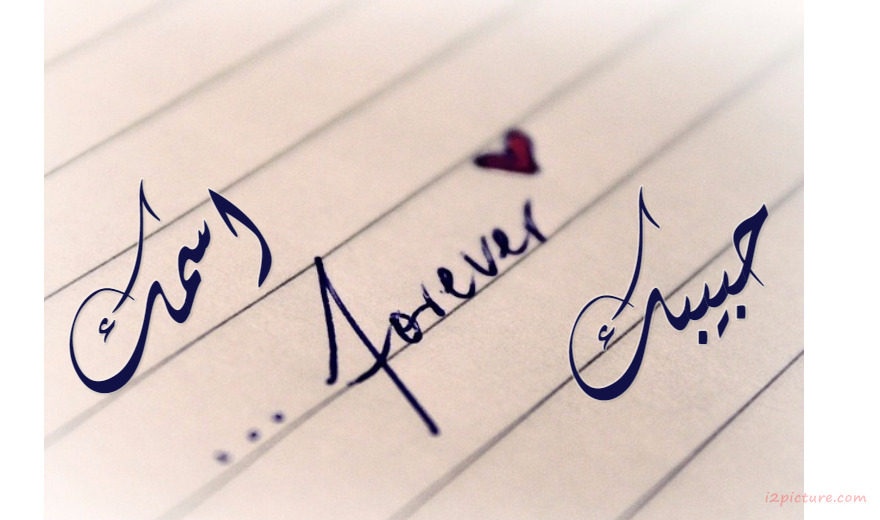 اسمك
... forever
حبيبك
i2picture.com